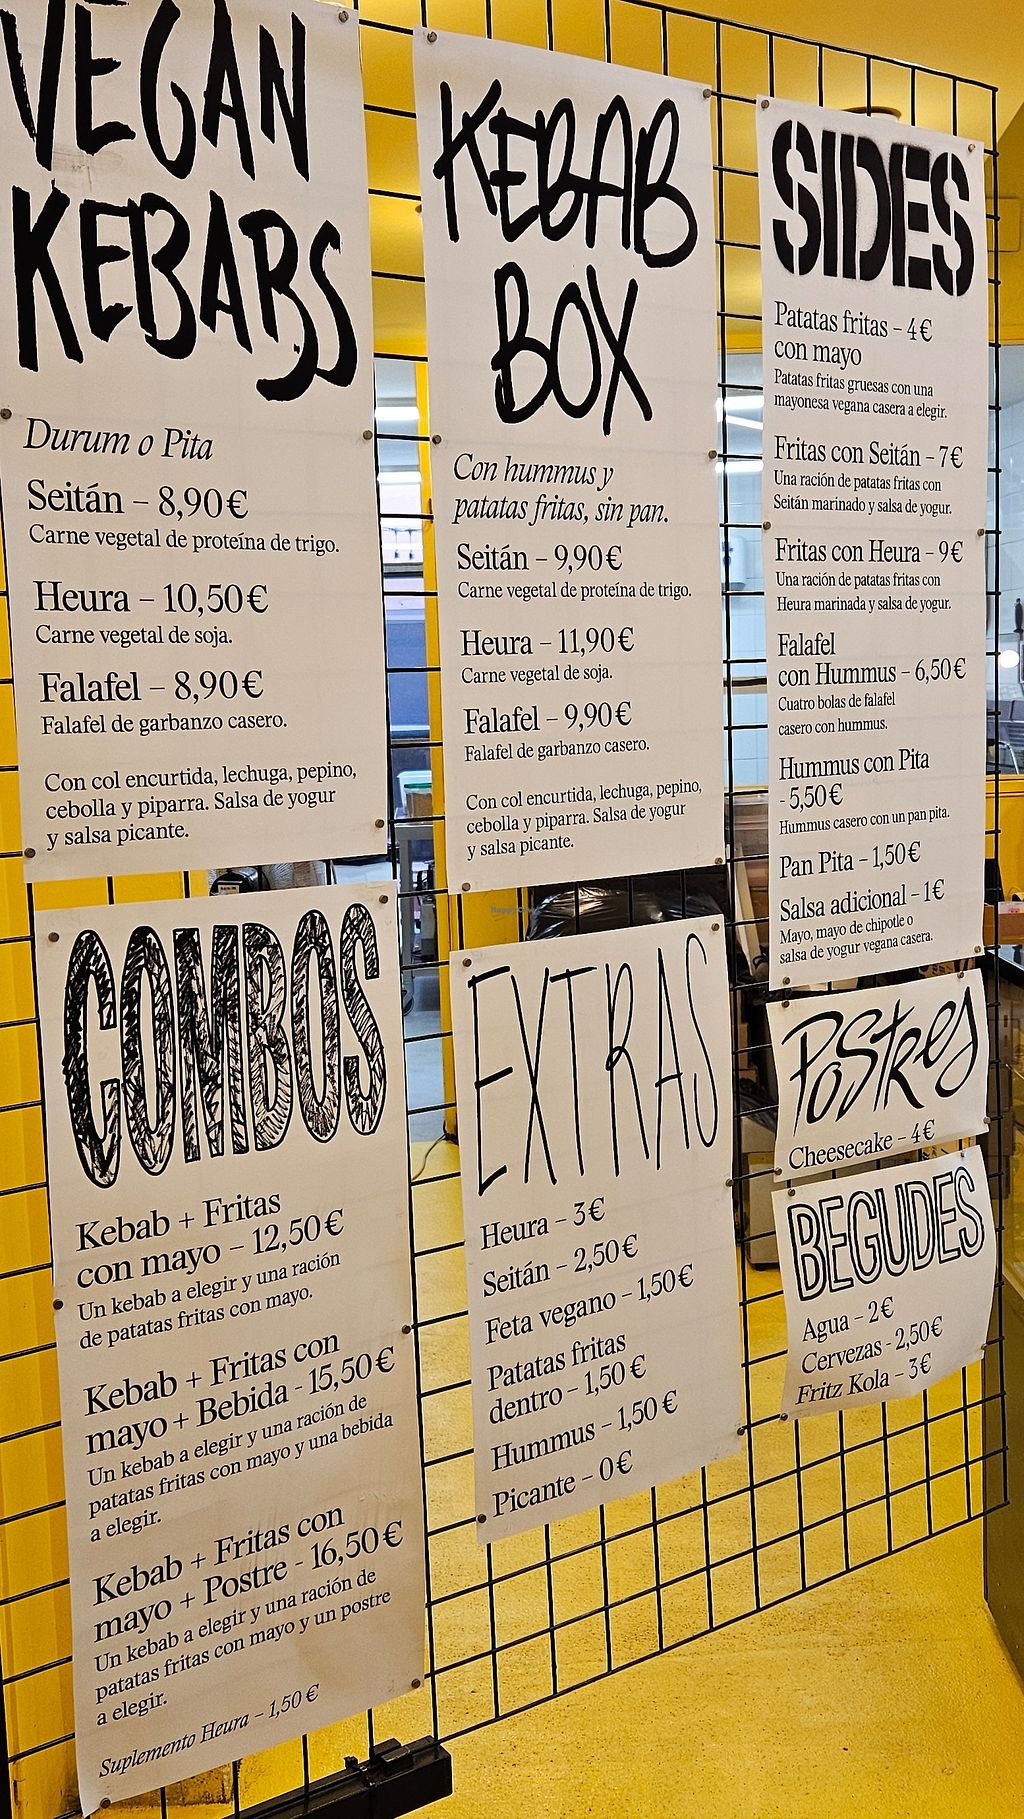 VEGAN
KEBABS
Durum o Pita
Seitán – 8,90€
Carne vegetal de proteína de trigo.
Heura – 10,50€
Carne vegetal de soja.
Falafel – 8,90€
Falafel de garbanzo casero.
Con col encurtida, lechuga, pepino,
cebolla y piparra. Salsa de yogur
y salsa picante.
KEBAB
BOX
Con hummus y
patatas fritas, sin pan.
Seitán – 9,90€
Carne vegetal de proteína de trigo.
Heura – 11,90€
Carne vegetal de soja.
Falafel – 9,90€
Falafel de garbanzo casero.
Con col encurtida, lechuga, pepino,
cebolla y piparra. Salsa de yogur
y salsa picante.
SIDES
Patatas fritas – 4€
con mayo
Patatas fritas gruesas con una
mayonesa vegana casera a elegir.
Fritas con Seitán – 7€
Una ración de patatas fritas con
Seitán marinado y salsa de yogur.
Fritas con Heura – 9€
Una ración de patatas fritas con
Heura marinada y salsa de yogur.
Falafel
con Hummus – 6,50€
Cuatro bolas de falafel
casero con hummus.
Hummus con Pita
- 5,50€
Hummus casero con un pan pita.
Pan Pita – 1,50€
Salsa adicional – 1€
Mayo, mayo de chipotle o
salsa de yogur vegana casera.
COMBOS
Kebab + Fritas
con mayo – 12,50€
Un kebab a elegir y una ración
de patatas fritas con mayo.
Kebab + Fritas con
mayo + Bebida - 15,50€
Un kebab a elegir y una ración de
patatas fritas con mayo y una bebida
a elegir.
Kebab + Fritas con
mayo + Postre - 16,50€
Un kebab a elegir y una ración de
patatas fritas con mayo y un postre
a elegir.
Suplemento Heura – 1,50 €
EXTRAS
Heura – 3€
Seitán – 2,50€
Feta vegano – 1,50€
Patatas fritas
dentro – 1,50€
Hummus – 1,50€
Picante – 0€
Postres
Cheesecake – 4€
BEGUDES
Agua – 2€
Cervezas - 2,50€
Fritz Kola – 3€